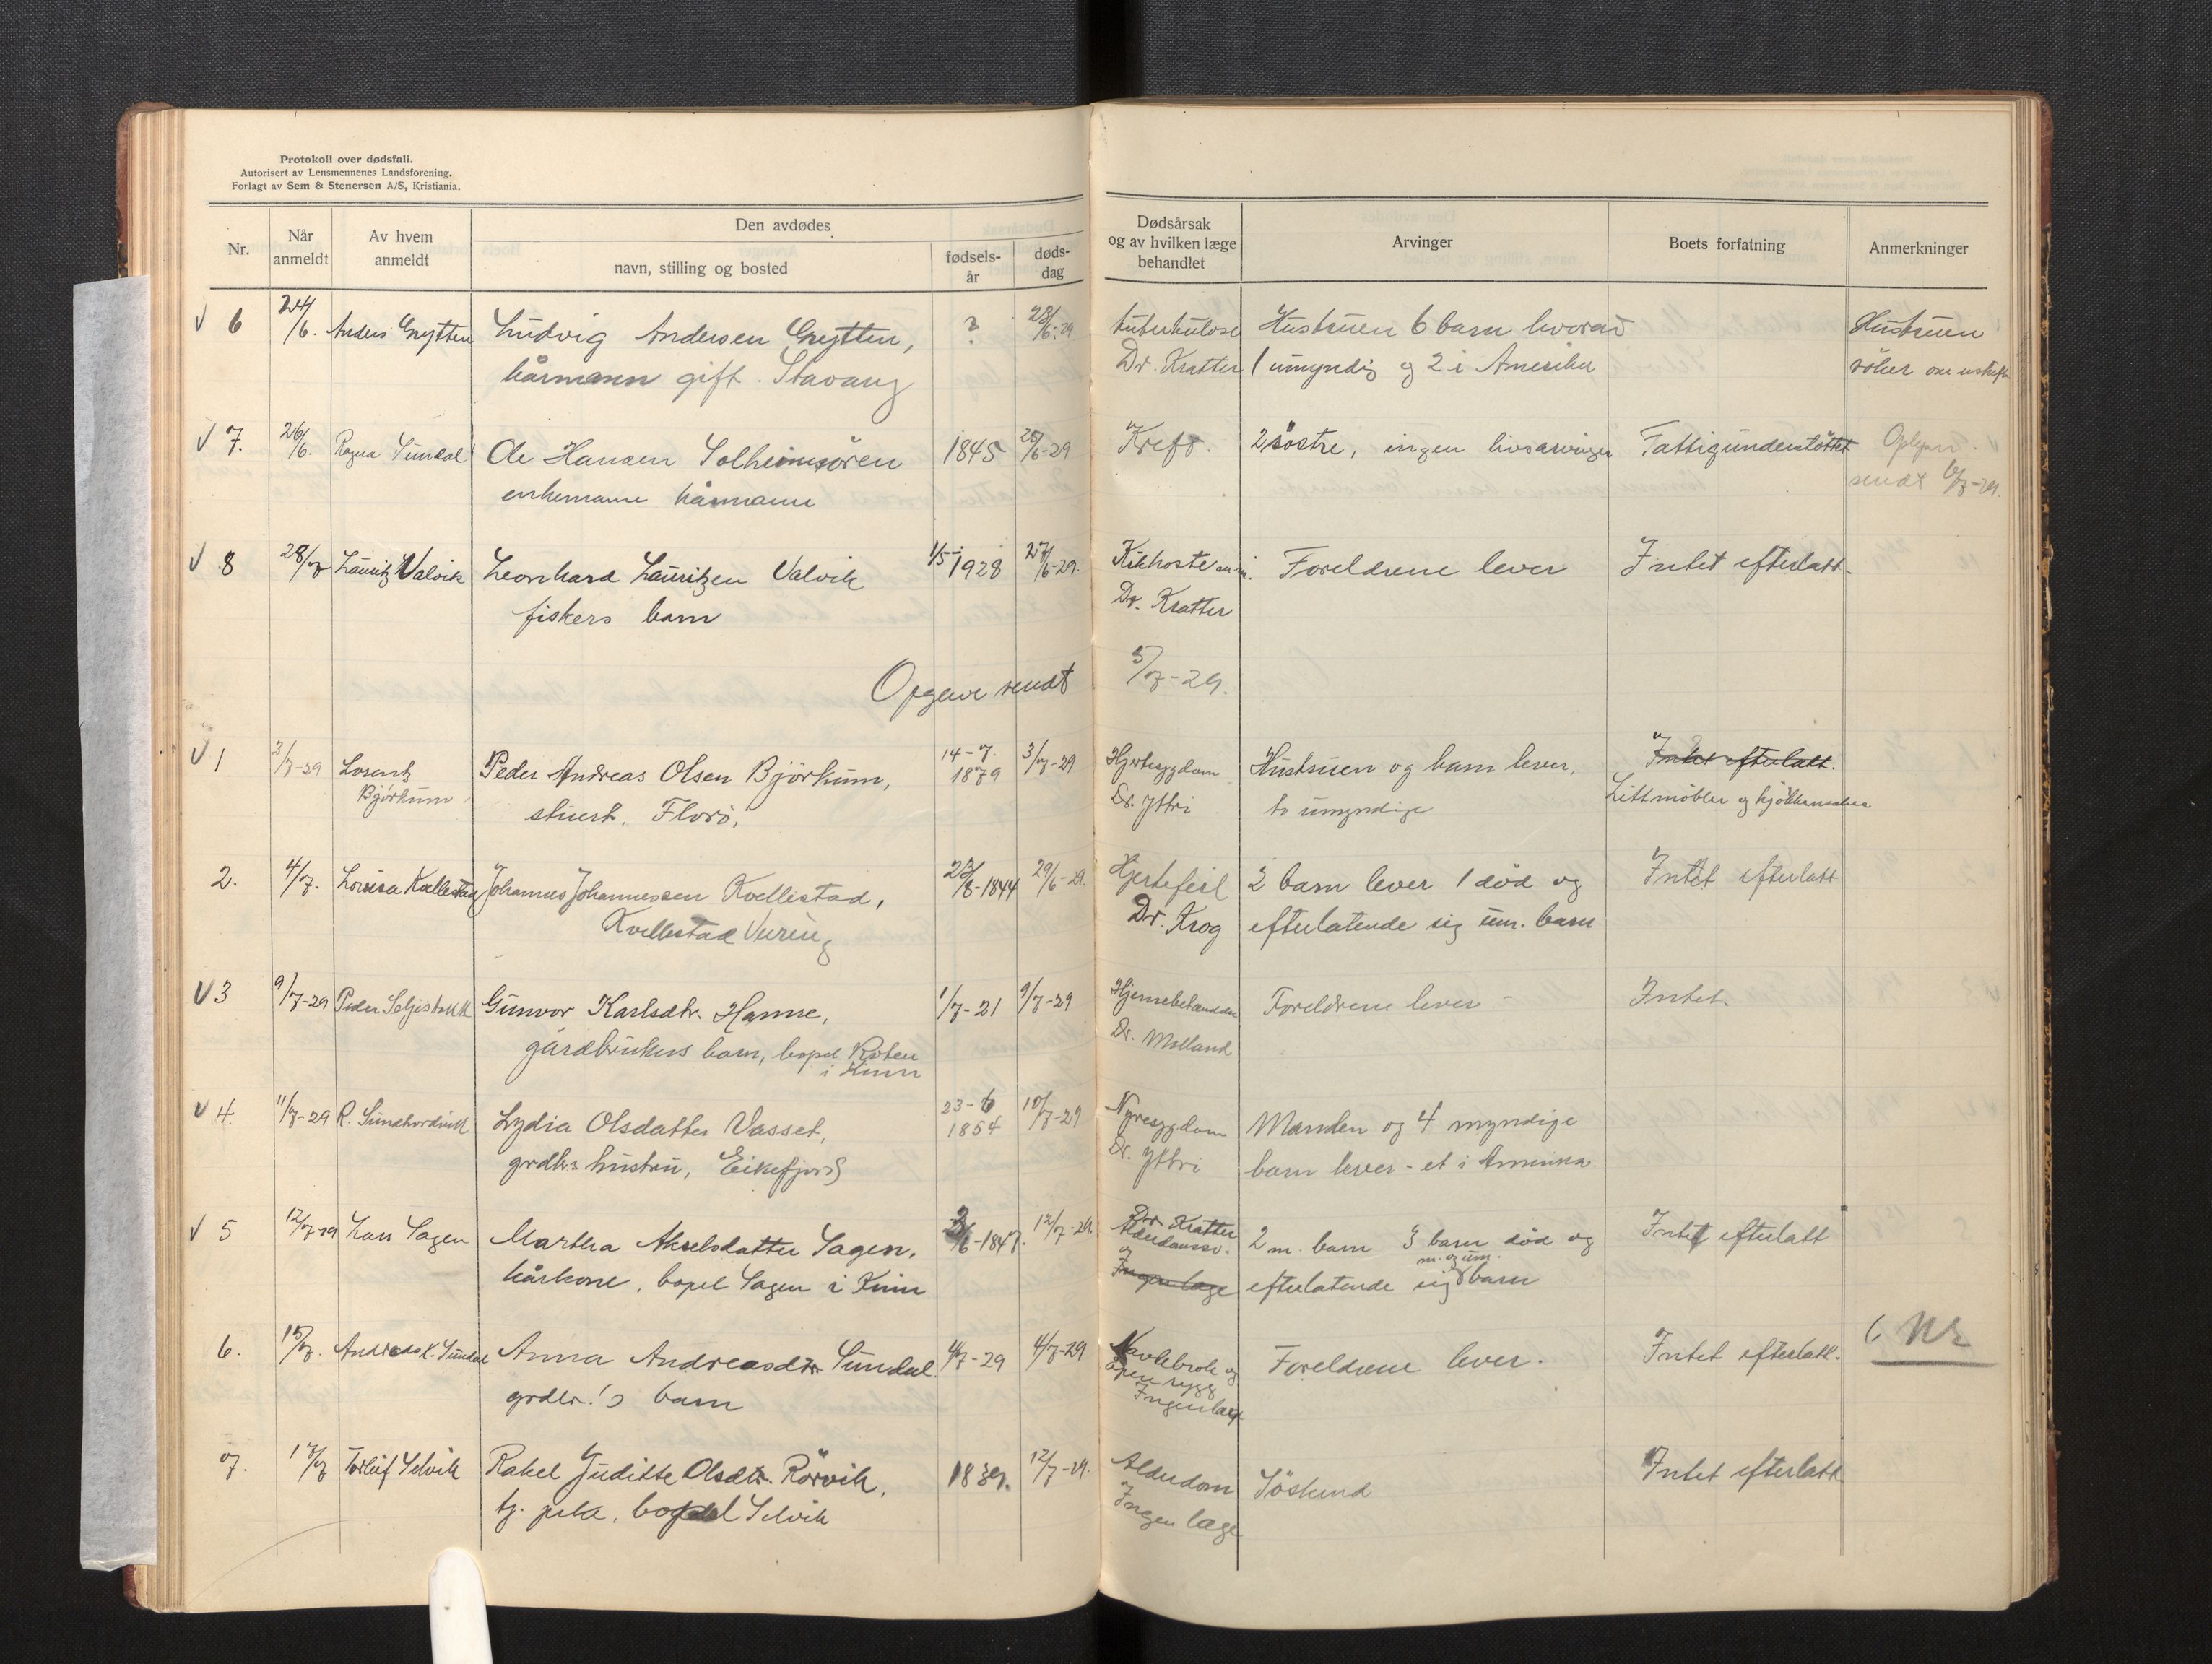 Protokoll over dødsfall.
Autorisert av Lensmennenes Landsforening.
Forlagt av Sem & Stenersen A/S, Kristiania.
Nr.
Når anmeldt
Av hvem anmeldt
Den avdødes
navn, stilling og bosted
fødsels-år
døds-dag
Dødsårsak og av hvilken læge behandlet
Arvinger
Boets forfatning
Anmerkninger
√ 6 24/6. Anders Grytten Ludvig Andersen Grytten, ? 23/6-29 tuberkulose Hustruen 6 barn hvorav Hustruen
kårmann gift. Stavang Dr. Kratter 1 umyndig og 2 i Amerika söker om uskifte
√ 7. 26/6. Ragna Sundal Ole Hansen Solheimsören 1845 /6-29 Kreft. 2 söstre, ingen livsarvinger Fattigunderstöttet
enkemann kårmann sendt 6/7-29.
√ 8 28/7 Lauritz Valvik Leonhard Lauritzen Valvik 1/5-1928 27/6-29. Kikhoste Foreldrene lever Intet efterlatt
fiskers barn Dr. Kratter
Opgave sendt 5/7-29.
√ 1 3/7-29 Lorentz Peder Andreas Olsen Björkum, 14-7. 1879 3/7-29 Hjertesygdom Hustruen og barn lever, Intet efterlatt.
Björkum stuert, Florö, Dr. Yttri to umyndige Litt möbler og kjökkensaker
2. 4/7. Lovisa Kvellestad Johannes Johannessen Kvellestad, 23/8-1844 29/6-29. Hjertefeil 2 barn lever 1 död og Intet efterlatt
Kvellestad Vuring Dr. Krog efterlatende sig um. barn
√ 3 9/7-29 Peder Seljestokk Gunvor Karlsdtr. Hanne, 1/7-21 9/7-29 Hjernebetændelse Foreldrene lever - Intet.
gårdbrukers barn, bopel Koten Dr. Molland
i Kinn
√ 4. 11/7-29 R. Lydia Olsdatter Vasset, 23-6 1854 10/7-29 Nyresygdom Manden og 4 myndige
grdbrs hustru, Eikefjord Dr. Yttri barn lever - et i Amerika.
√ 5 12/7-29 Lars Sagen Martha Akselsdatter Sagen, /6-1847. 12/7-29. Dr. Kratter 2 m. barn 3 barn död og Intet efterlatt
Alderdomssv. og m. og um.
kårkone, bopel Sagen i Kinn Ingen læge efterlatende sig barn
6. 15/7. Andreas K. Sundal Anna Andreasdtr. Sundal 4/7-29 4/7-29 Navlebrok og Foreldrene lever. Intet efterlatt. 6 Nr
grdbr.'s barn åpen rygg
Ingen læge
7. 17/7 Torleif Selvik Rakel Juditte Olsdtr. Rörvik, 1839. 12/7-29. Alderdom Söskend Intet efterlatt
tj. pike, bopel Selvik Ingen læge